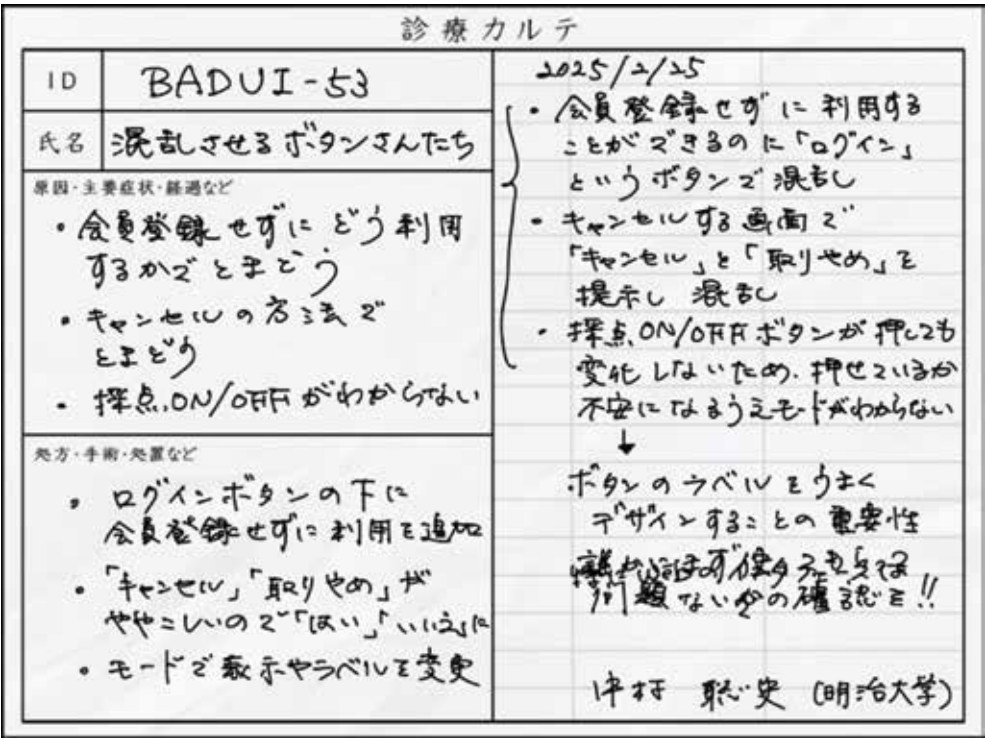 診療カルテ
ID
BADUI-53
氏名
混乱させるボタンさんたち
原因・主要症状・経過など
・会員登録せずにどう利用
するかでとまどう
・キャンセルの方法で
とまどう
・採点ON/OFFがわからない
処方・手術・処置など
・ログインボタンの下に
会員登録せずに利用を追加
・「キャンセル」「取りやめ」が
ややこしいので「はい」「いいえ」に
・モードで表示やラベルを変更
2025/2/25
・会員登録せずに利用する
ことができるのに「ログイン」
というボタンで混乱し
・キャンセルする画面で
「キャンセル」と「取りやめ」を
提示し 混乱し
・採点ON/OFFボタンが押しても
変化しないため、押せているか
不安になるうえモードがわからない
↓
ボタンのラベルをうまく
デザインすることの重要性
問題ないかの確認を!!
中村 聡史 (明治大学)